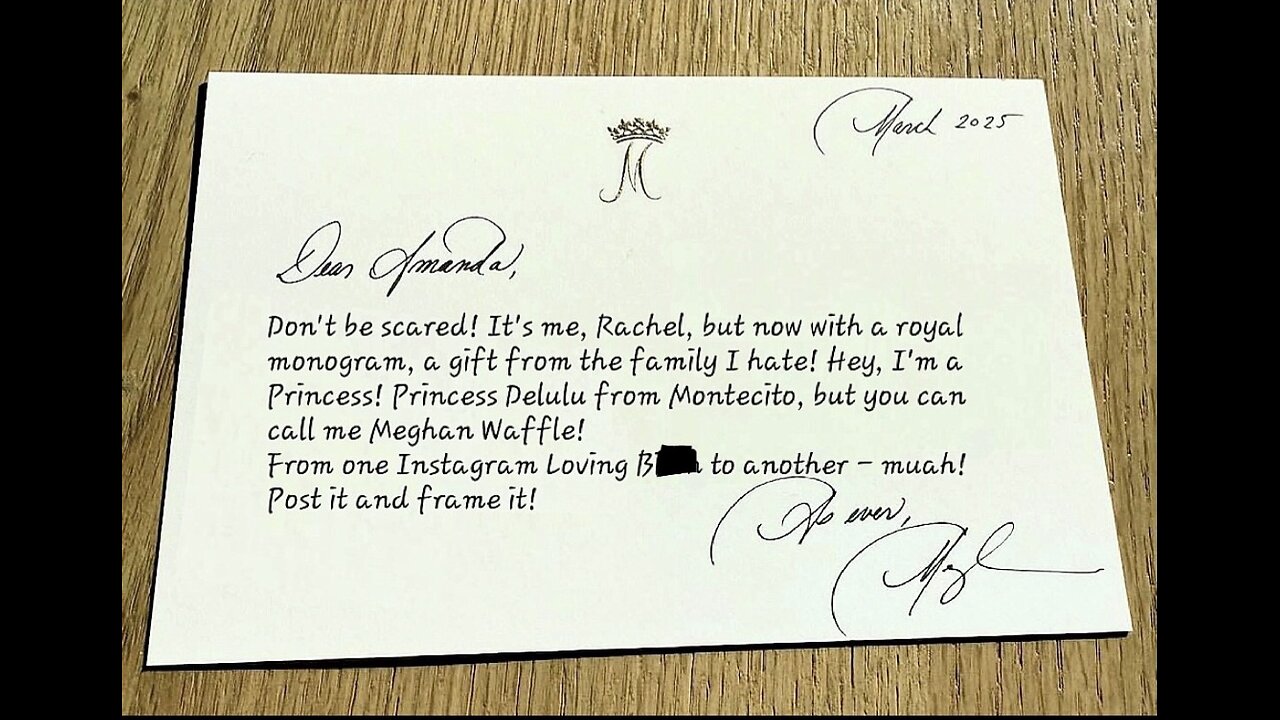 March 2025
M
Dear Amanda,
Don't be scared! It's me, Rachel, but now with a royal
monogram, a gift from the family I hate! Hey, I'm a
Princess! Princess Delulu from Montecito, but you can
call me Meghan Waffle!
From one Instagram Loving to another – muah!
Post it and frame it!
As ever,
Meghan